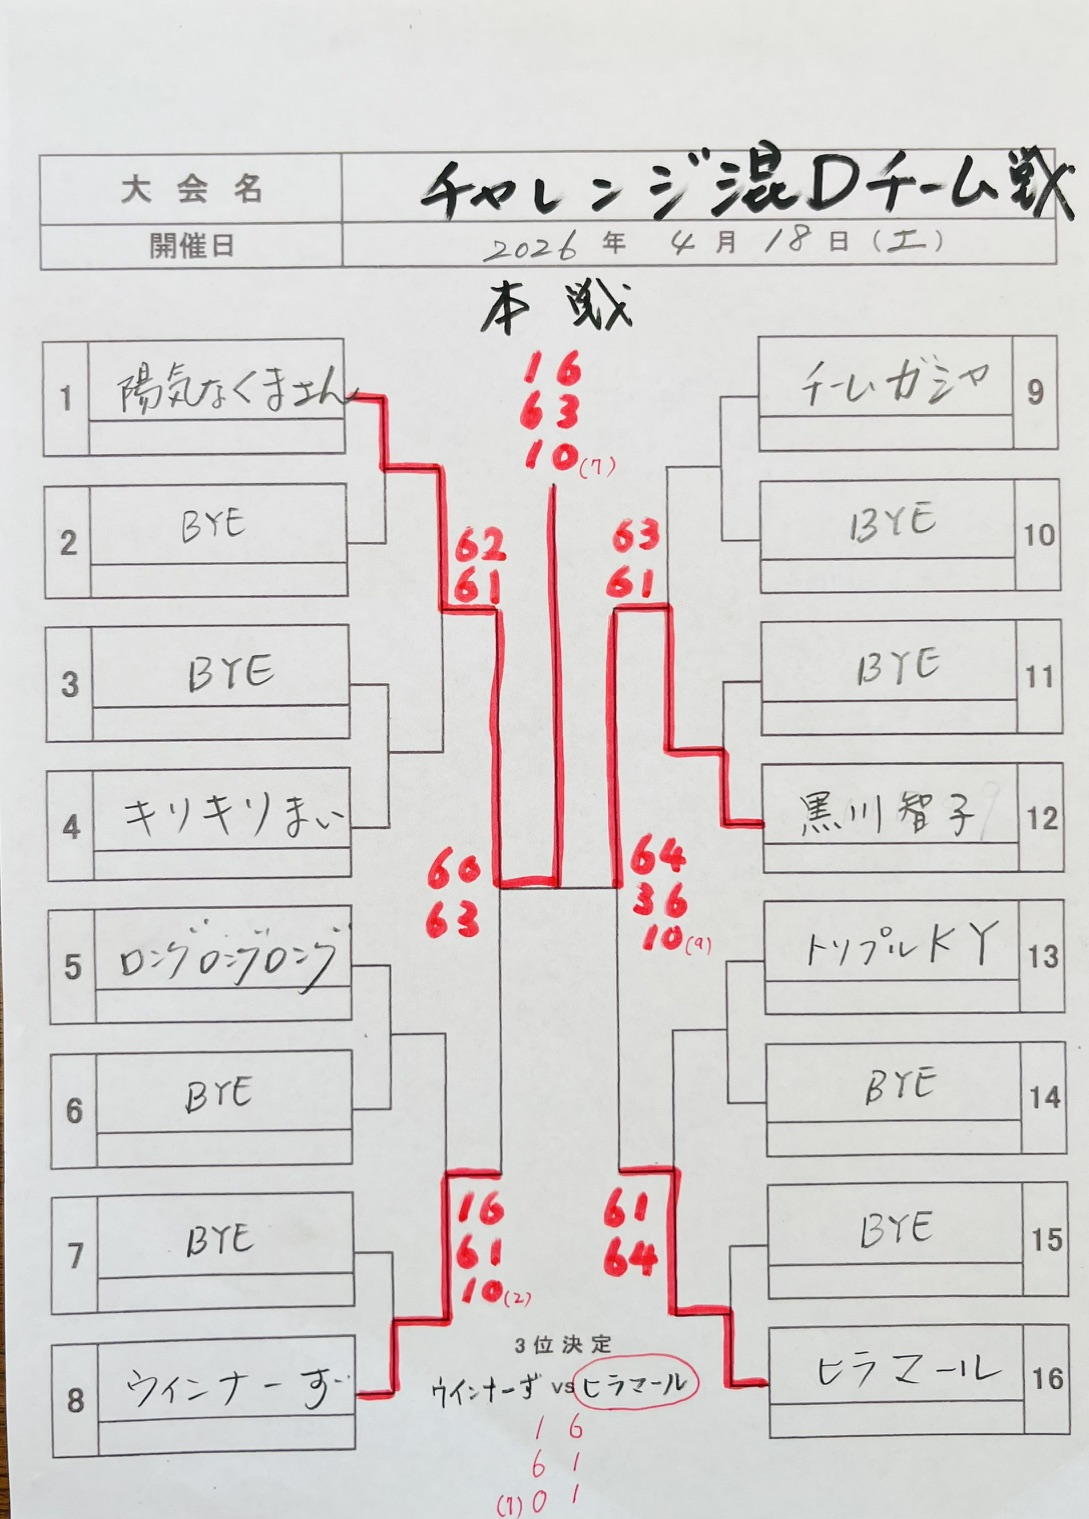 大会名 チャレンジ混Dチーム戦
開催日 2026年 4月18日(土)
本戦
16
63
10(7)
1 陽気なくまさん
2 BYE
3 BYE
4 キリキリまい
5 ロングロングロング
6 BYE
7 BYE
8 ウインナーず
62
61
60
63
16
61
10(2)
9 チームガシャ
10 BYE
11 BYE
12 黒川智子
13 トリプルKY
14 BYE
15 BYE
16 ヒラマール
63
61
64
36
10(9)
61
64
3位決定
ウインナーず vs ヒラマール
1 6
6 1
(7) 0 1